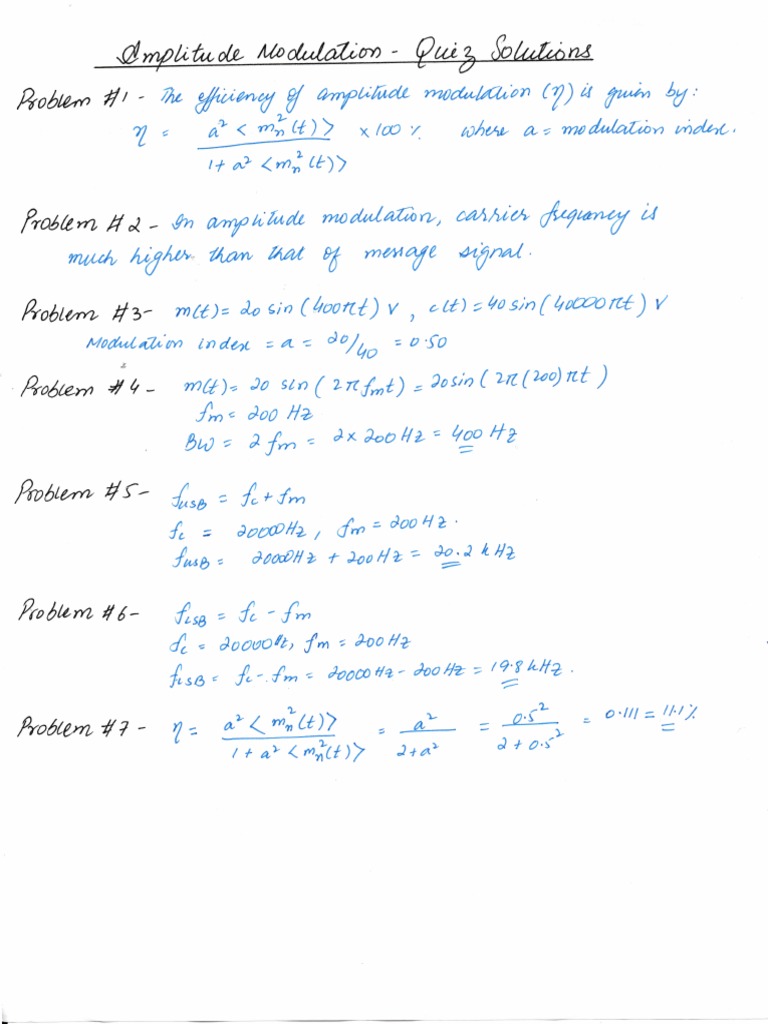 Amplitude Modulation - Quiz Solutions
Problem #1 - The efficiency of amplitude modulation (η) is given by:
η = a² < mn²(t) > / 1 + a² < mn²(t) > × 100 % where a = modulation index.
Problem #2 - In amplitude modulation, carrier frequency is
much higher than that of message signal.
Problem #3 - m(t) = 20 sin (400πt) V, c(t) = 40 sin (40000πt) V
Modulation index = a = 20/40 = 0.50
Problem #4 - m(t) = 20 sin (2π fmt) = 20 sin (2π(200)πt)
fm = 200 Hz
BW = 2 fm = 2 × 200 Hz = 400 Hz
Problem #5 - fUSB = fc + fm
fc = 20000Hz, fm = 200 Hz.
fUSB = 20000Hz + 200 Hz = 20.2 kHz
Problem #6 - fLSB = fc - fm
fc = 20000Hz, fm = 200 Hz
fLSB = fc - fm = 20000 Hz - 200 Hz = 19.8 kHz.
Problem #7 - η = a² < mn²(t) > / 1 + a² < mn²(t) > = a² / 2 + a² = 0.5² / 2 + 0.5² = 0.111 = 11.1 %